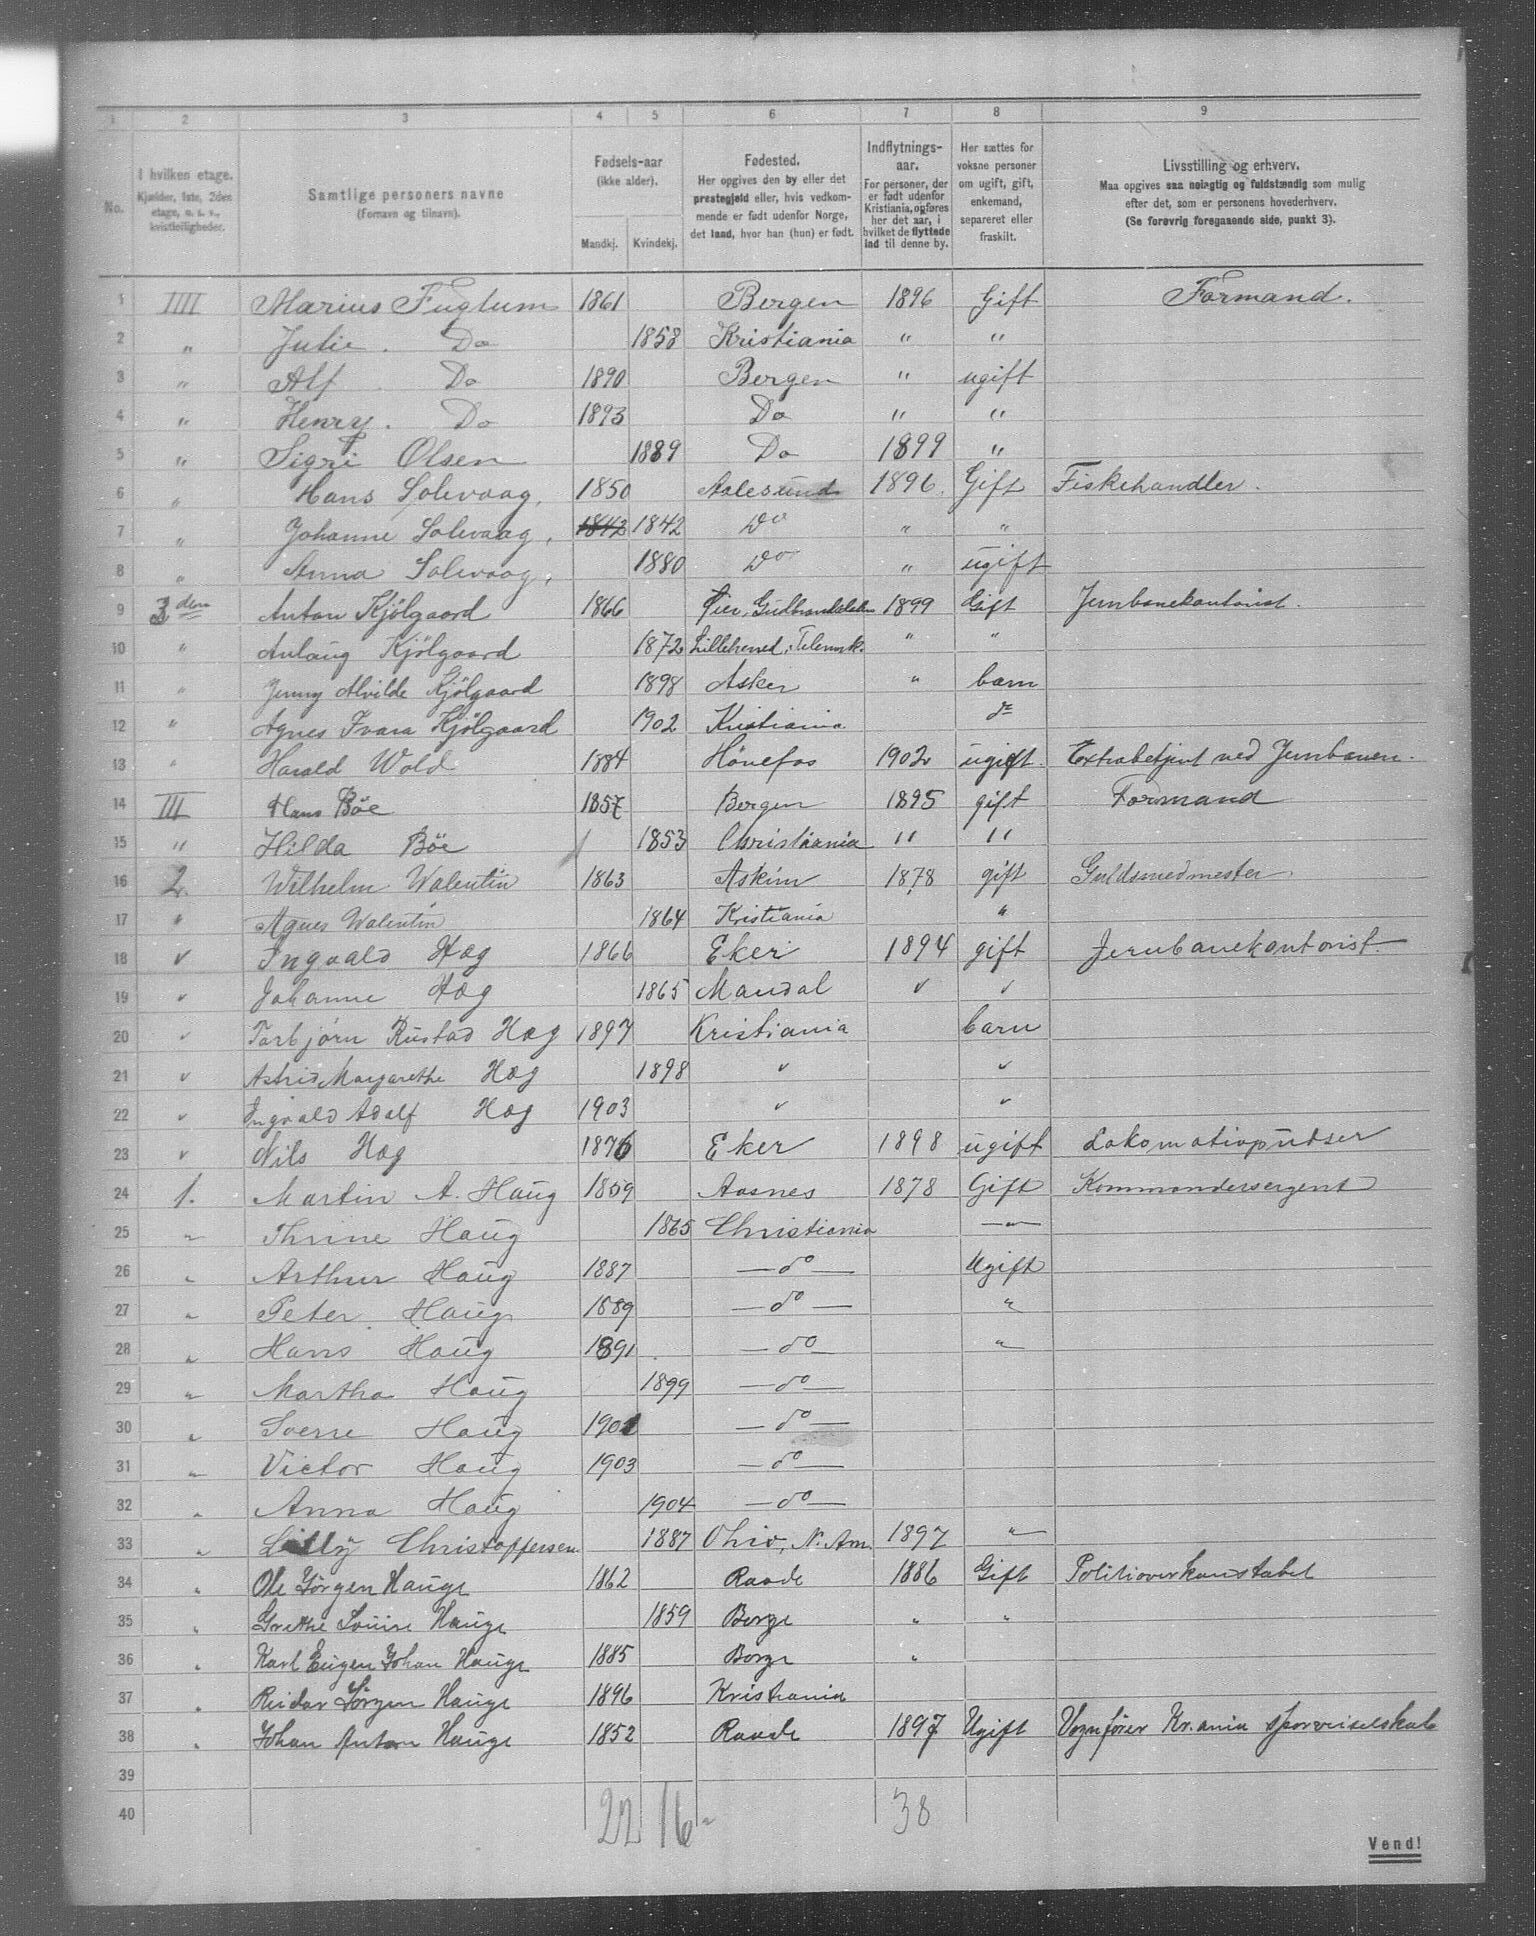 1 2 3 4 5 6 7 8 9
No. I hvilken etage. Kjælder, 1ste, 2den etage, o. s. v., kvistleiligheder. Samtlige personers navne (Fornavn og tilnavn). Fødsels-aar (ikke alder). Mandkj. Kvindekj. Fødested. Her opgives den by eller det præstegjeld eller, hvis vedkommende er født udenfor Norge, det land, hvor han (hun) er født. Indflytnings-aar. For personer, der er født udenfor Kristiania, opføres her det aar, i hvilket de flyttede ind til denne by. Her sættes for voksne personer om ugift, gift, enkemand, separeret eller fraskilt. Livsstilling og erhverv. Maa opgives saa nøiagtig og fuldstændig som mulig efter det, som er personens hovederhverv. (Se forøvrig foregaaende side, punkt 3).
1 IIII Marius Fuglum 1861 Bergen 1896 Gift Formand.
2 " Julie. Do 1858 Kristiania " "
3 " Alf. Do 1890 Bergen " ugift
4 " Henry. Do 1893 Do " "
5 " Sigri Olsen 1889 Do 1899 "
6 " Hans Solevaag, 1850 Aalesund 1896. Gift Fiskehandler.
7 " Johanne Solevaag, 1842 1842 Do " "
8 " Anna Solevaag, 1880 Do " ugift
9 3den Anton Kjölgaard 1866 Öier, Gudbrandsdalen 1899 Gift Jernbanekontorist.
10 " Aulaug Kjölgaard 1872 Lilleherred, Telemark. " "
11 " Jenny Alvilde Kjölgaard 1898 Asker " barn
12 " Agnes Ivara Kjölgaard 1902 Kristiania do
13 " Harald Wold 1884 Hönefos 1902 ugift. Extrabetjent ved Jernbanen.
14 III Hans Böe 1857 Bergen 1895 gift Formand
15 " Hilda Böe 1853 Christiania " "
16 2. Wilhelm Walentin 1863 Askim 1878 gift Guldsmedmester
17 " Agnes Walentin 1864 Kristiania "
18 v Ingvald Hæg 1866 Eker 1894 gift Jernbanekontorist.
19 v Johanne Hæg 1865 Mandal v v
20 v Torbjörn Rustad Hæg 1897 Kristiania barn
21 v Astrid Margarethe Hæg 1898 v v
22 v Ingvald Adolf Hæg 1903 v v
23 v Nils Hæg 1876 Eker 1898 ugift Lokomotivpudser
24 1. Martin A. Haug 1859 Aasnes 1878 Gift Kommandersergent
25 " Thrine Haug 1865 Christiania —"—
26 " Arthur Haug 1887 —do— Ugift
27 " Peter Haug 1889 —do— "
28 " Hans Haug 1891 —do— "
29 " Martha Haug 1899 —do—
30 " Sverre Haug 1901 —do—
31 " Victor Haug 1903 —do—
32 " Anna Haug 1904 —do—
33 " Lilly Christoffersen 1887 Ohio, N. Am. 1897 "
34 " Ole Jörgen Hauge 1862 Raade 1886 Gift Politioverkonstabel
35 " Grethe Louise Hauge 1859 Borge " "
36 " Karl Eugen Johan Hauge 1885 Borge "
37 " Reidar Jörgen Hauge 1896 Kristiania
38 " Johan Anton Hauge 1852 Raade 1897 Ugift Vognfører Kr.ania Sporveiselskab
39
40 22 16 38
Vend!